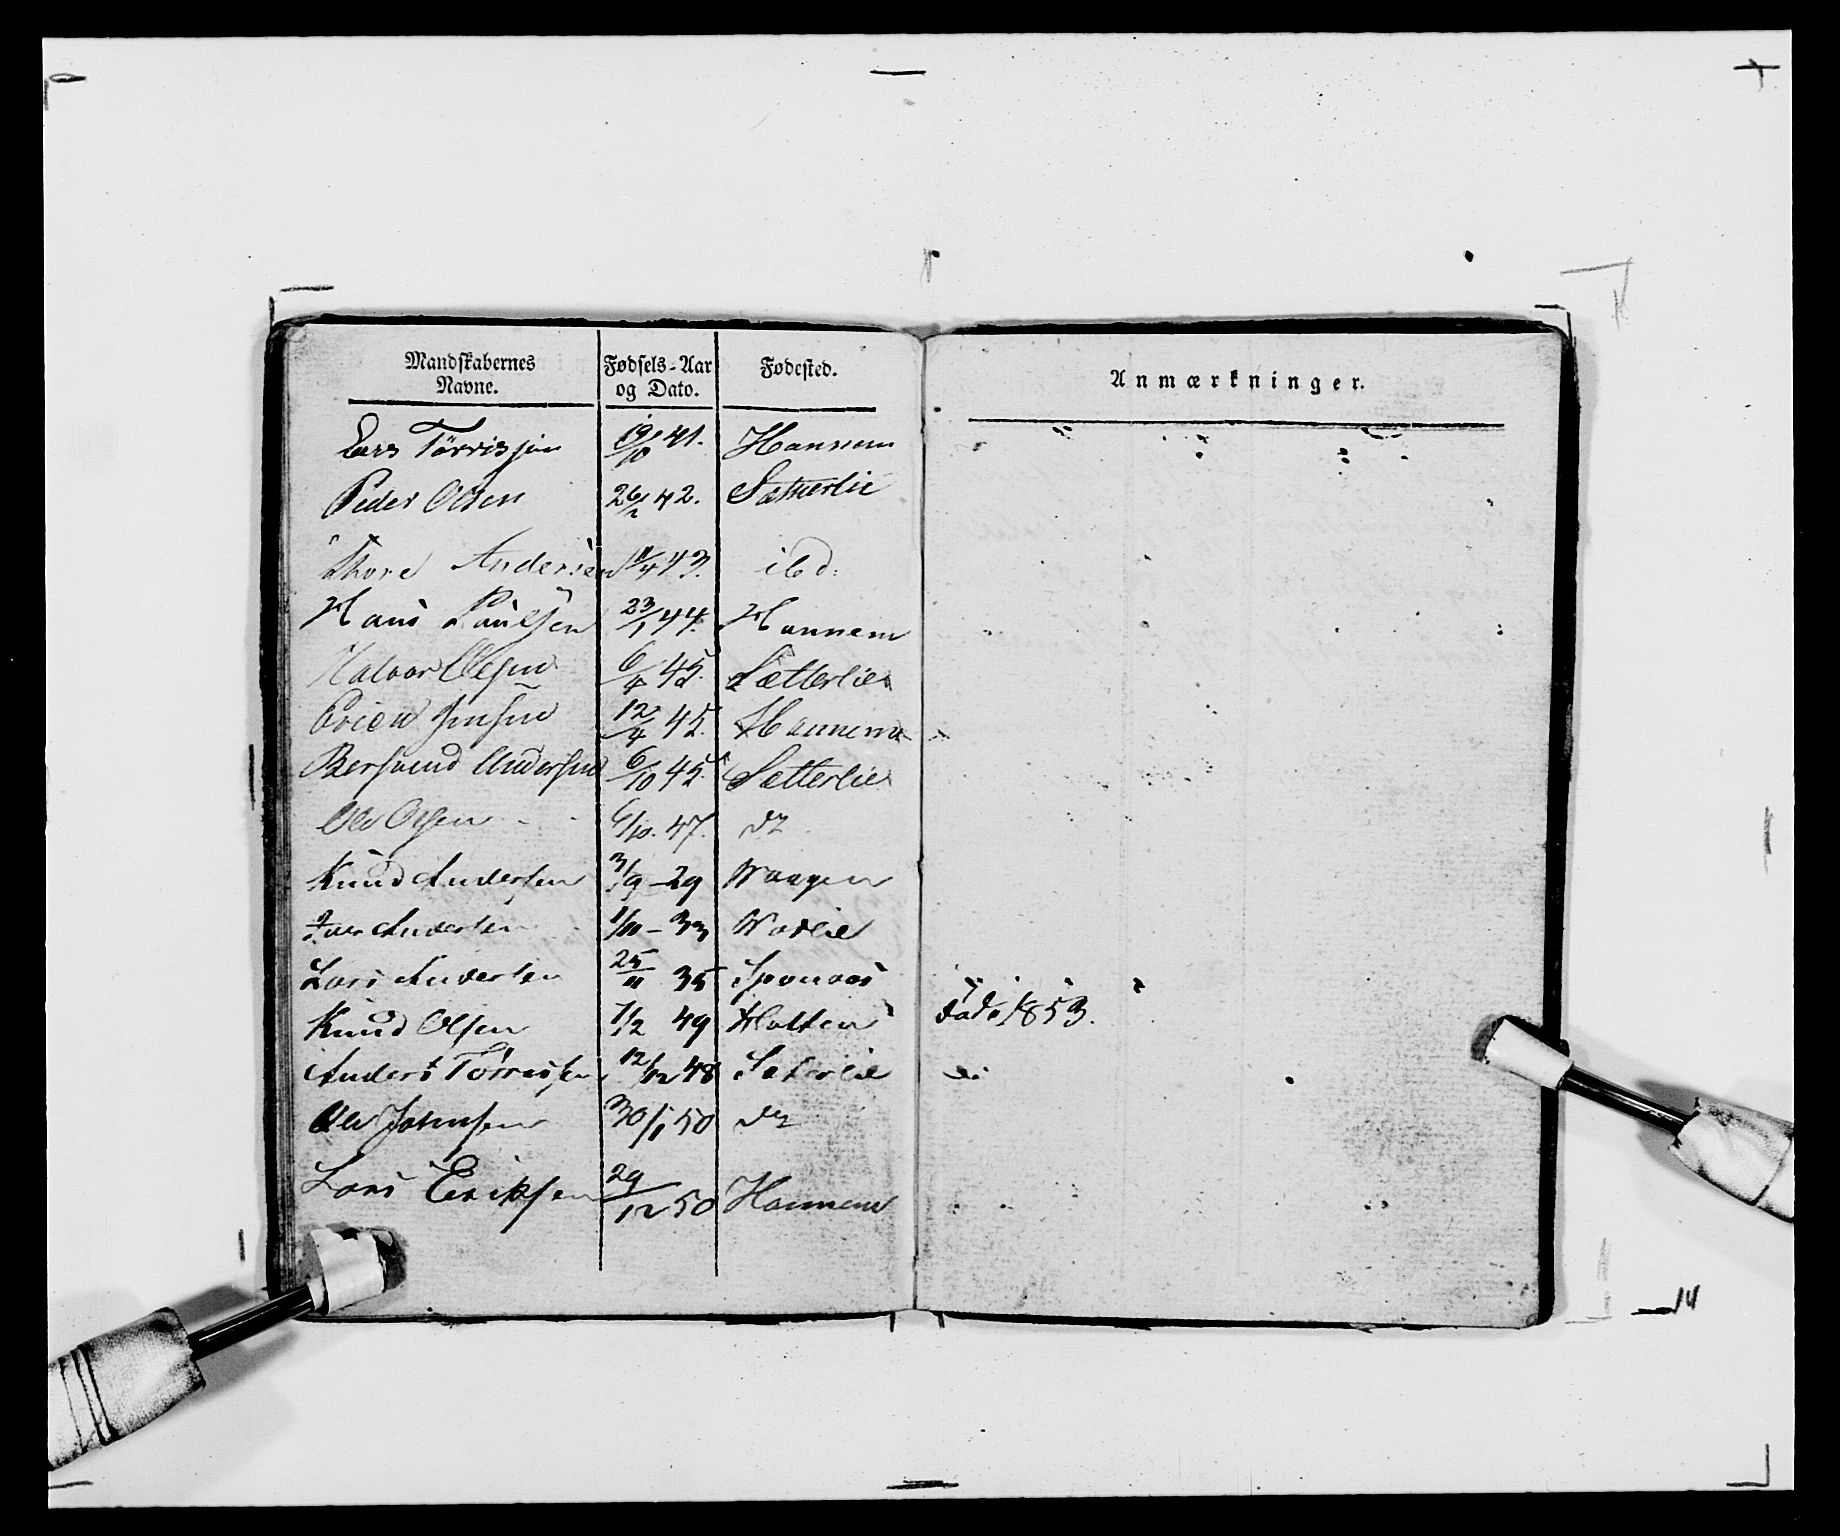 Mandskabernes Navne. Fødsels-Aar og Dato. Fødested. Anmærkninger.
Lars Tørrisjen 19/10 41. Hannem
Peder Olsen 26/2 42. Sætherlie
Thore Andersen 11/4 43. ibd:
Hans Paulsen 23/1 44. Hannem
Halvor Olsen 6/4 45. Sætterlie
Jensen 12/4 45. Hannem
Bersvend Andersen 6/10 45. Sætterlie
Ole Olsen 6/10. 47. do
Knud Andersen 3/9 - 29 Waagen
Iver Andersen 1/11 - 33 Wadlie
Lars Andersen 25/11 35 Sponaas
Knud Olsen 7/2 49 Holten døde 1853.
Anders Tørrissen 12/12 48 Sæterlie
Ole Johnsen 30/1 50 do
Lars Eriksen 29/12 50 Hannem
14